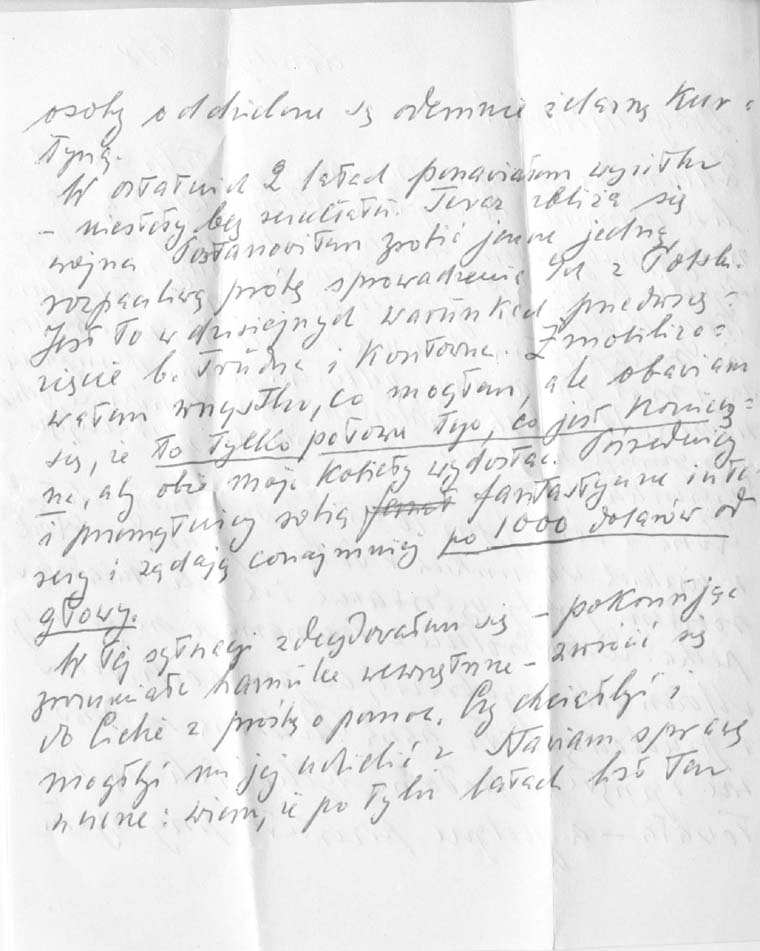 osoby oddzielone są odemnie żelazną Kur=
tyną.
W ostatnich 2 latach ponawiałam wysiłki
- niestety bez rezultatu. Teraz zbliża się
wojna Postanowiłam zrobić jeszcze jedną
rozpaczliwą próbę sprowadzenia Ich z Polski.
Jest to w dzisiejszych warunkach przedwzię=
cie b. trudne i Kosztowne. Zmobilizo=
wałam wszystko, co mogłam, ale obawiam
się, że to tylko połowa tego, co jest Koniecz=
ne, aby obie moje Kobiety wydostać. Pośrednicy
i przemytnicy robią fant fantastyczne inte=
resy i żądają conajmniej po 1000 dolarów od
głowy.
W tej sytuacji zdecydowałam się - pokonując
zrozumiałe hamulce wewnętrzne - zwrócić się
do Ciebie z prośbą o pomoc. Czy chciałbyś i
mógłbyś mi jej udzielić? Stawiam sprawę
: wiem, że po tylu latach list ten